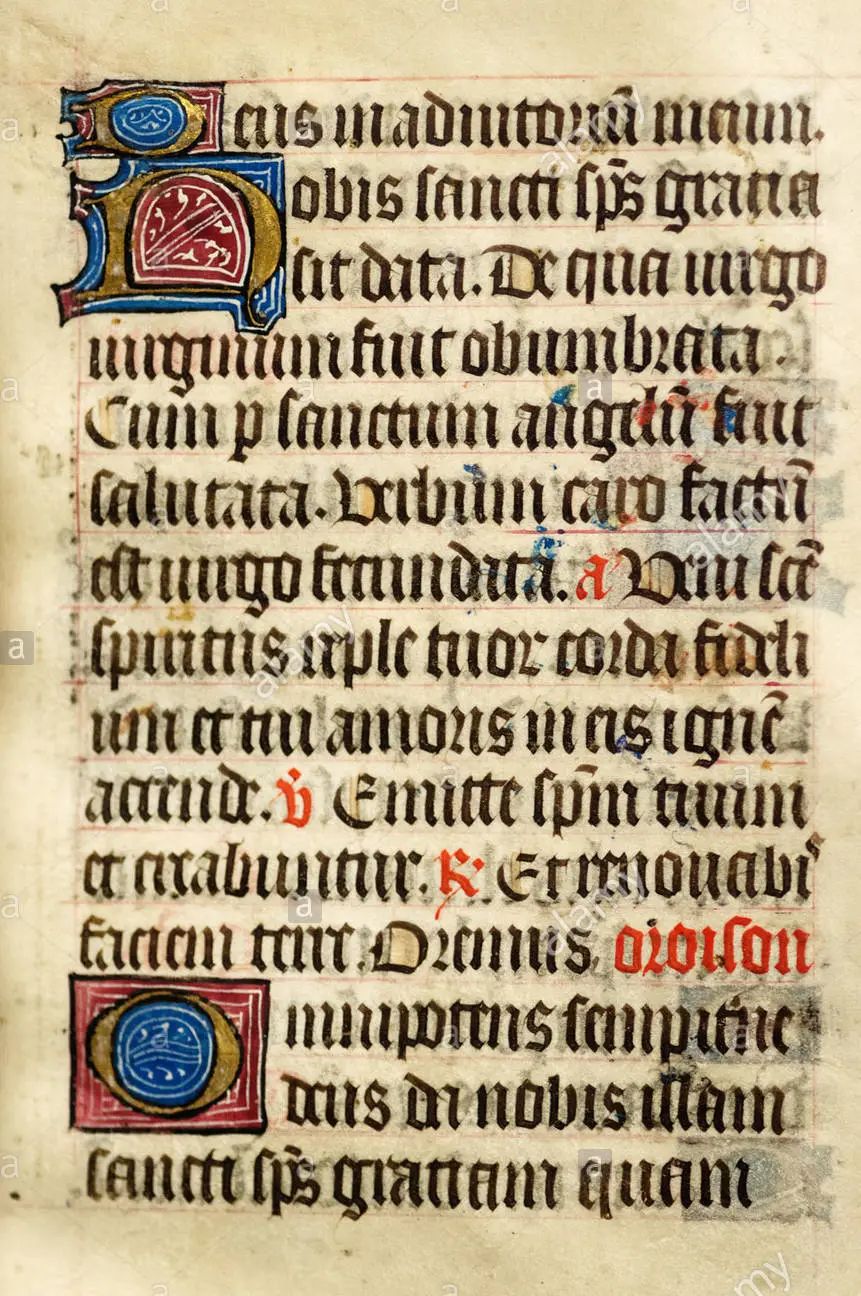 Deus in adiutoriū meum.
Nobis sancti sp̄s gratia
sit data. De qua uirgo
uirginum fuit obumbrata.
Cum p sanctum angelū fuit
salutata. Verbum caro factū
est uirgo fecundata. a Veni sc̄e
spiritus reple tuor corda fideli
um et tui amoris in eis ignē
accende. v̄ Emitte sp̄m tuum
et creabuntur. R̸ Et renouabis
faciem terre. Oremus. oroison
Omnipotens sempit̄ne
deus da nobis illam
sancti sp̄s gratiam quam